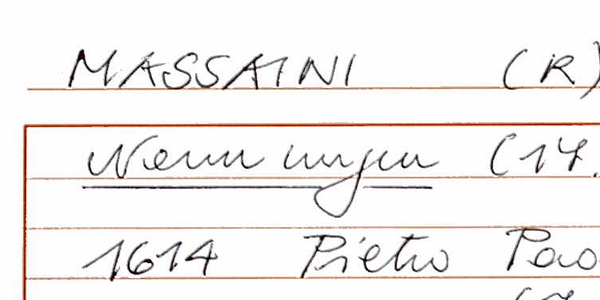 MASSAINI (R)
Nennungen (17.
1614 Pietro Pao